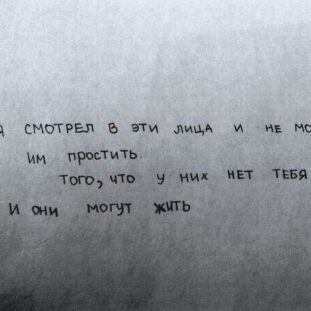 Я СМОТРЕЛ В ЭТИ ЛИЦА И НЕ МО
ИМ ПРОСТИТЬ
ТОГО, ЧТО У НИХ НЕТ ТЕБЯ
И ОНИ МОГУТ ЖИТЬ